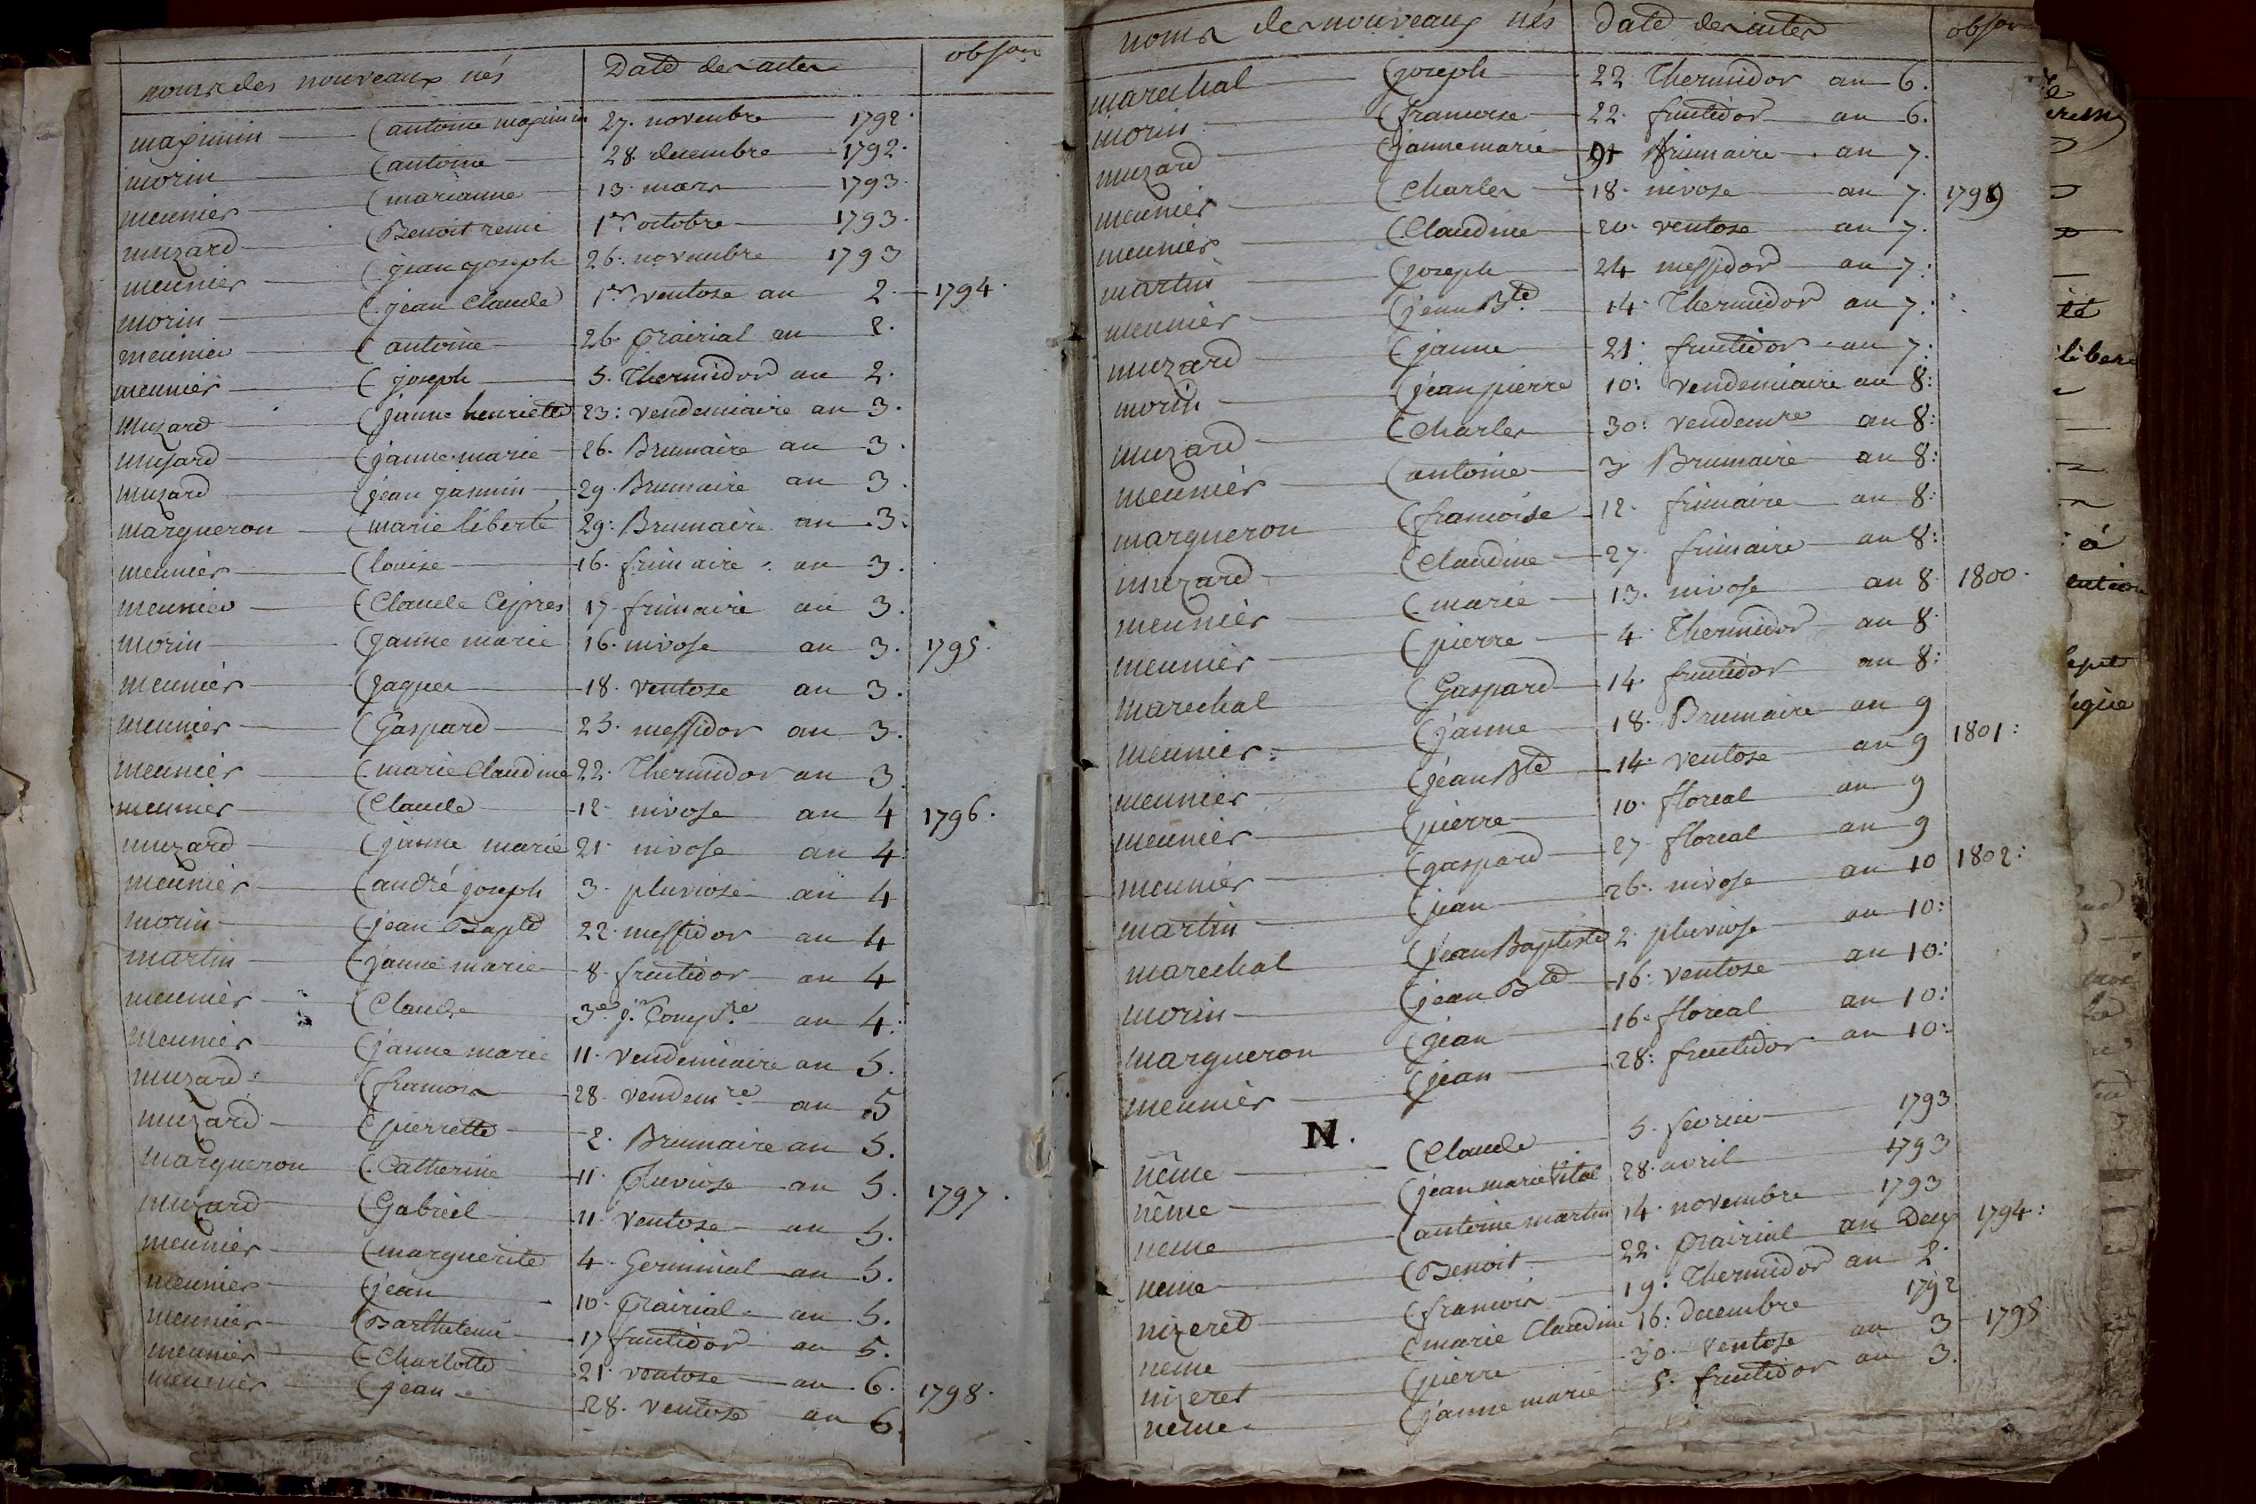 noms des nouveaux nés Date des actes obser.
maximin (antoine maximin 27. novembre 1792.
morin (antoine 28. decembre 1792.
meunier (marianne 13. mars 1793.
muzard (Benoit remi 1er octobre 1793.
meunier (jean joseph 26. novembre 1793
morin (jean Claude 1er ventose an 2. 1794.
meunier (antoine 26. prairial an 2.
meunier (joseph 5. Thermidor an 2.
muzard (janne henriette 23: vendemiaire an 3.
muzard (janne marie 26. Brumaire an 3.
muzard (jean jasmin 29. Brumaire an 3.
margueron (marie liberté 29: Brumaire an 3.
meunier (louise 16. frimaire. an 3.
meunier (Claude Cipres 17. frimaire an 3.
morin (janne marie 16. nivose an 3. 1795.
meunier (jaques 18. ventose an 3.
meunier (Gaspard 25. messidor an 3.
meunier (marie Claudine 22. Thermidor an 3
meunier (Claude 12. nivose an 4 1796.
muzard (janne marie 21. nivose an 4.
meunier (andré joseph 3. pluviose an 4
morin (jean Bapte 22. messidor an 4
martin (janne marie 8. fructidor an 4
meunier (Claude 3e jr Compre an 4.
meunier (janne marie 11. vendemiaire an 5.
muzard: (francois 28. vendemre an 5
muzard (pierrette 2. Brumaire an 5.
margueron (Catherine 11. Pluviose an 5. 1797.
muzard (Gabriel 11. ventose an 5.
meunier (marguerite 4. Germinal an 5.
meunier (jean 10. prairial an 5.
meunier (Barthelemi 17 fructidor an 5.
meunier (Charlotte 21. ventose an 6. 1798.
meunier (jean 28. ventose an 6.
noms des nouveaux nés Date des actes obser
marechal (joseph 22 Thermidor an 6.
morin (francoise 22. fructidor an 6.
muzard (janne marie frimaire. an 7.
meunier (Charles 18. nivose an 7. 1799
meunier (Claudine 20. ventose an 7.
martin (joseph 24 messidor an 7:
meunier (jean Bte 14. Thermidor an 7:
muzard (janne 21: fructidor an 7:
morin (jean pierre 10: vendemiaire an 8:
muzard (Charles 30: vendemre an 8:
meunier (antoine 3 Brumaire an 8:
margueron (francoise 12. frimaire an 8:
muzard (Claudine 27. frimaire an 8:
meunier (marie 13. nivose an 8 1800.
meunier (pierre 4. Thermidor an 8.
marechal (Gaspard 14. fructidor an 8:
meunier: (janne 18. Brumaire an 9
meunier (jean Bte 14. ventose an 9 1801:
meunier (pierre 10. floreal an 9
meunier (gaspard 27. floreal an 9
martin (jean 26. nivose an 10 1802:
marechal (jean Baptiste 2. pluviose an 10:
morin (jean Bte 16. ventose an 10:
margueron (jean 16. floreal an 10:
meunier (jean 28: fructidor an 10:
N.
néme (Claude 5. fevrier 1793
néme (jean marie Vital 28. avril 1793
neme (antoine martin 14. novembre 1793
neme (Benoit 22. prairial an Deux 1794:
nizeret (francois 19. Thermidor an 2.
neme (marie Claudine 16: decembre 1792
nizeret (pierre 30. ventose an 3 1795
neme (janne marie 5. fructidor an 3.